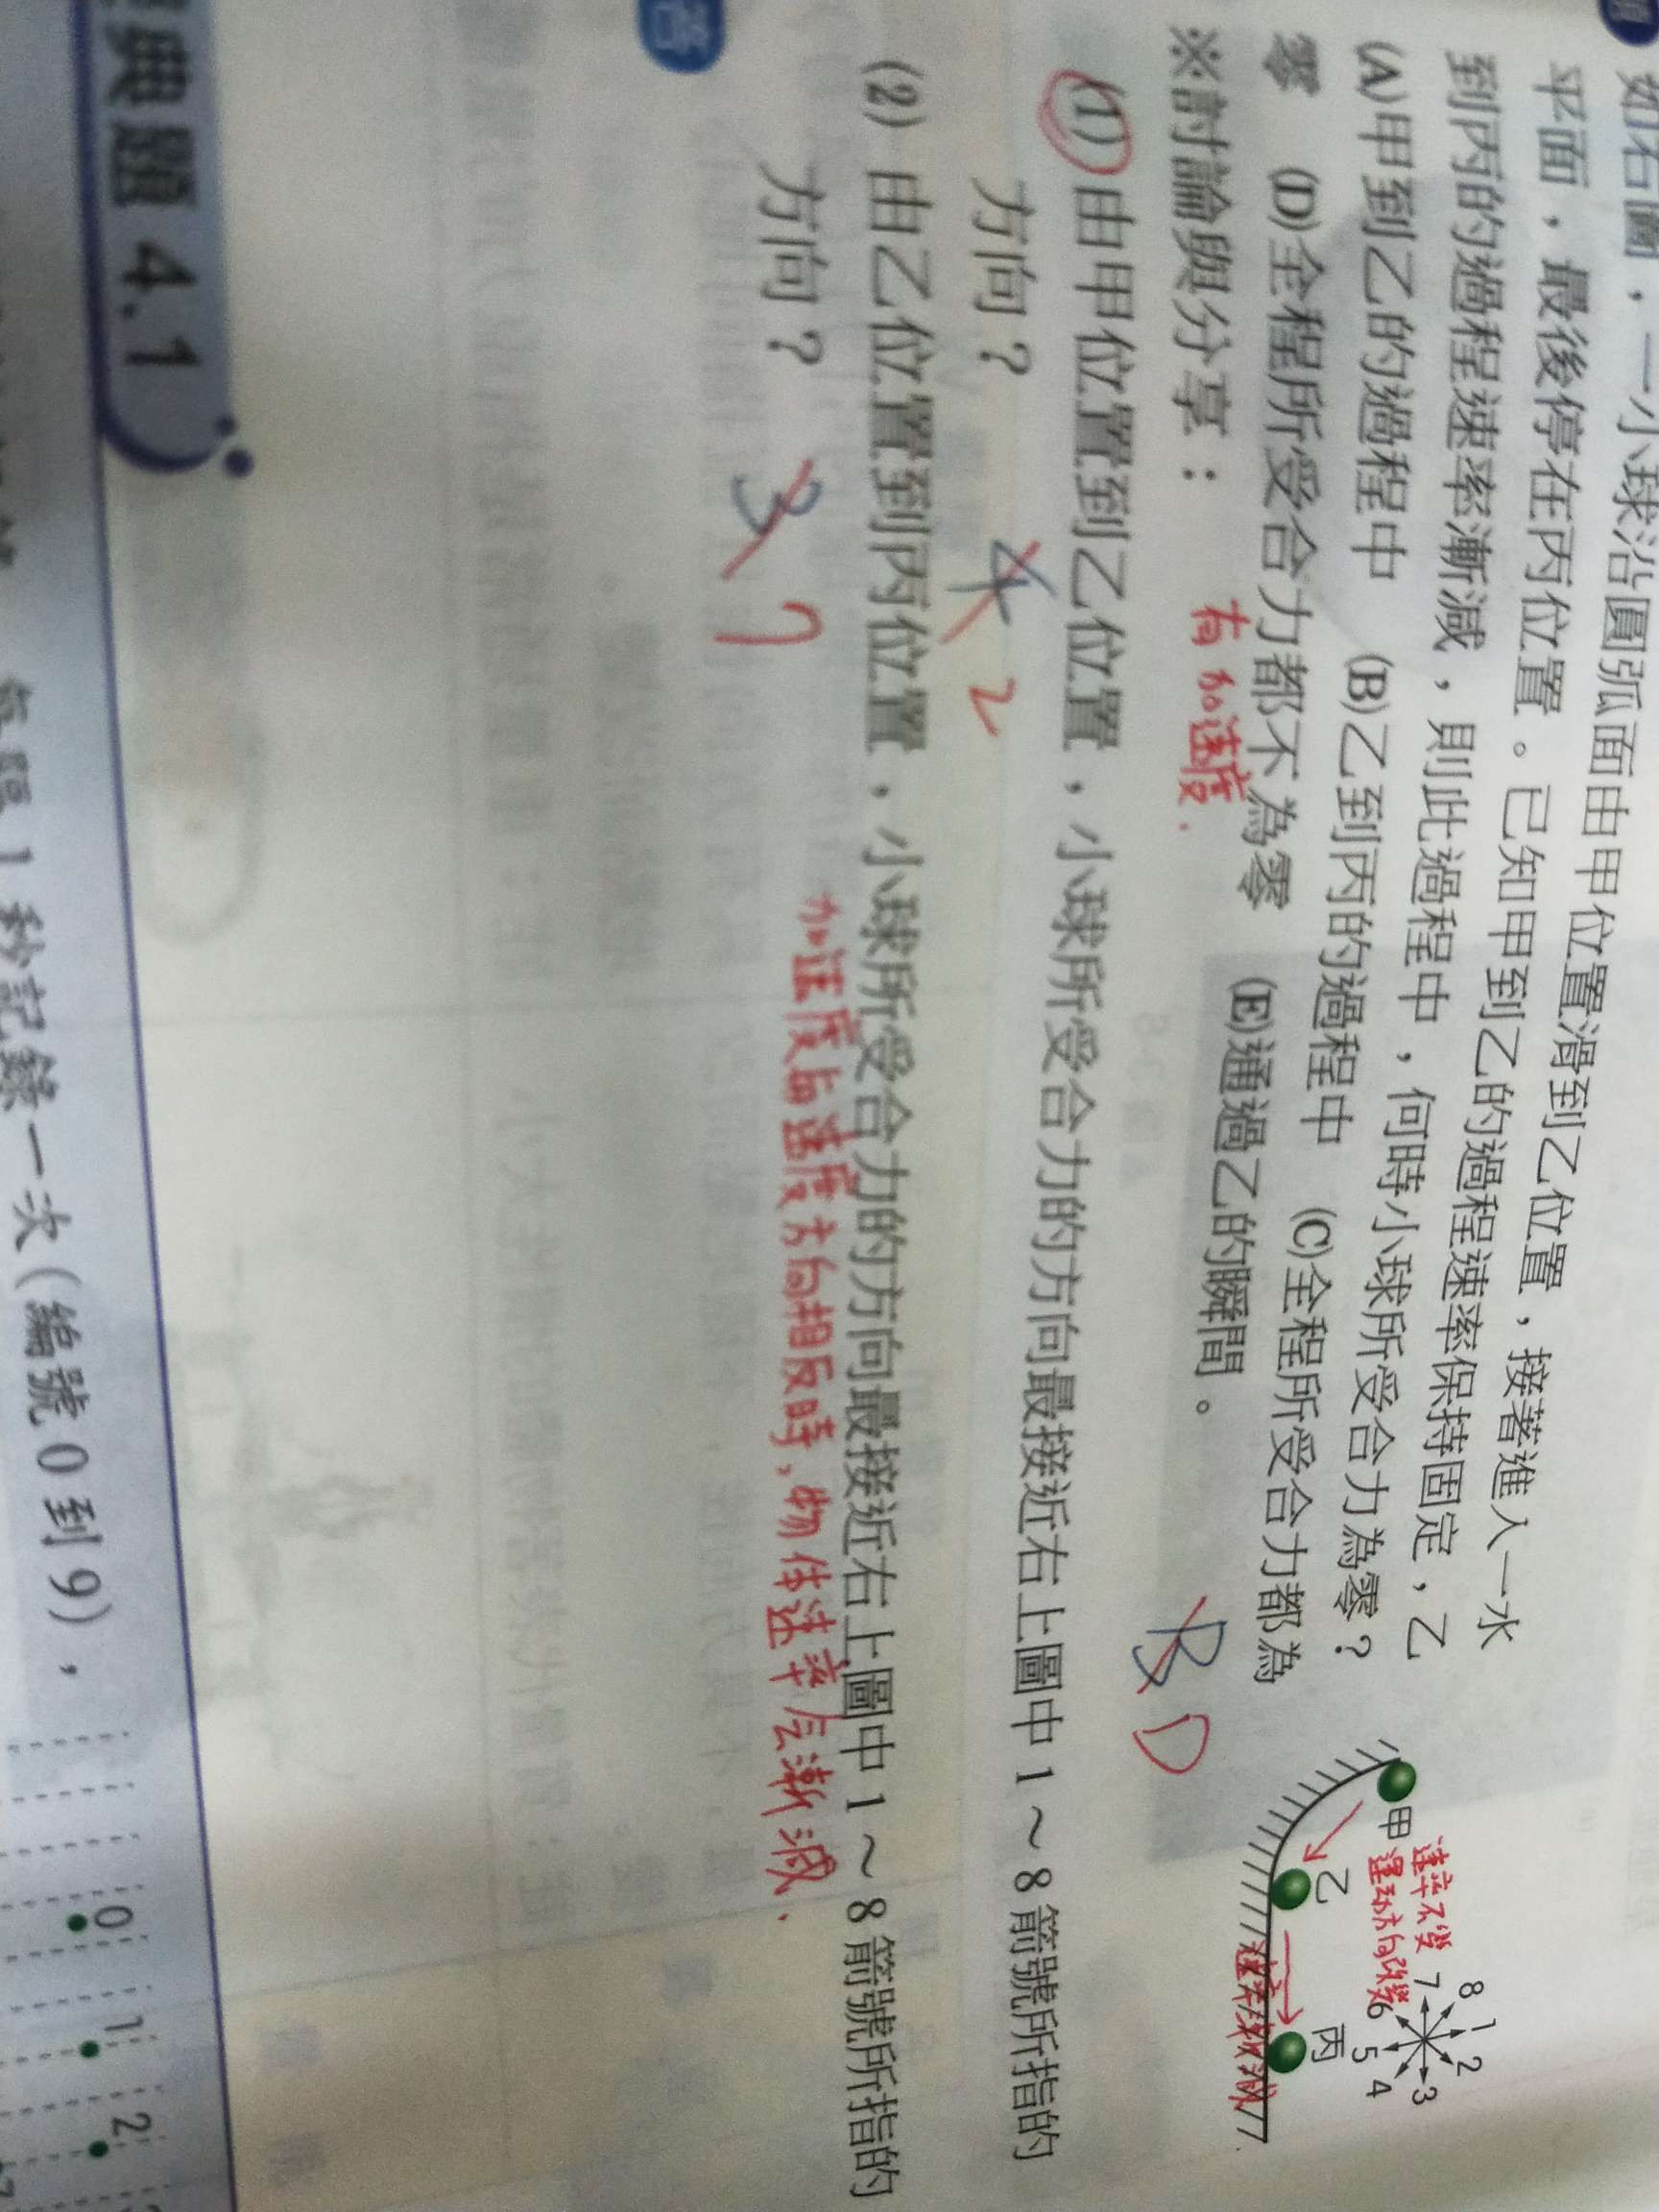 如右圖，一小球沿圓弧面由甲位置滑到乙位置，接著進入一水
平面，最後停在丙位置。已知甲到乙的過程速率保持固定，乙
到丙的過程速率漸減，則此過程中，何時小球所受合力為零？
(A)甲到乙的過程中 (B)乙到丙的過程中 (C)全程所受合力都為
零 (D)全程所受合力都不為零 (E)通過乙的瞬間。
有加速度.
B D
甲
乙
丙
速率不變
運動方向改變
速率漸減
8 1 2
7 3
6 5 4
※討論與分享：
(1) 由甲位置到乙位置，小球所受合力的方向最接近右上圖中 1～8 箭號所指的
方向？ 4 2
(2) 由乙位置到丙位置，小球所受合力的方向最接近右上圖中 1～8 箭號所指的
方向？ 3 7
加速度與速度方向相反時，物体速率会漸減.
答
典題 4.1
秒記錄一次(編號 0 到 9)，
0 1 2